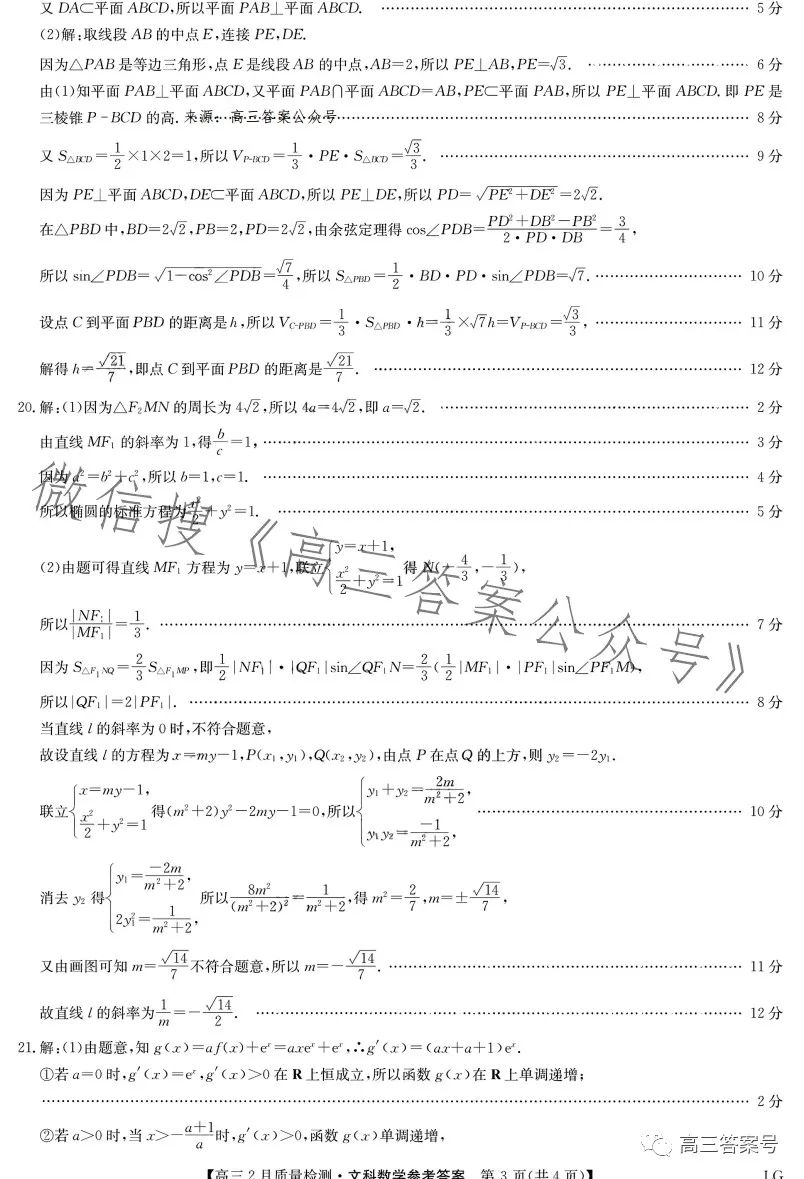 又 DA⊂平面 ABCD,所以平面 PAB⊥平面 ABCD. …… 5 分
(2)解:取线段 AB 的中点 E,连接 PE,DE.
因为△PAB 是等边三角形,点 E 是线段 AB 的中点,AB=2,所以 PE⊥AB,PE=√3. …… 6 分
由(1)知平面 PAB⊥平面 ABCD,又平面 PAB∩平面 ABCD=AB,PE⊂平面 PAB,所以 PE⊥平面 ABCD. 即 PE 是
三棱锥 P-BCD 的高. 来源:高三答案公众号 …… 8 分
又 S△BCD=1/2×1×2=1,所以 VP-BCD=1/3·PE·S△BCD=√3/3. …… 9 分
因为 PE⊥平面 ABCD,DE⊂平面 ABCD,所以 PE⊥DE,所以 PD=√(PE²+DE²)=2√2.
在△PBD 中,BD=2√2,PB=2,PD=2√2,由余弦定理得 cos∠PDB=(PD²+DB²-PB²)/(2·PD·DB)=3/4,
所以 sin∠PDB=√(1-cos²∠PDB)=√7/4,所以 S△PBD=1/2·BD·PD·sin∠PDB=√7. …… 10 分
设点 C 到平面 PBD 的距离是 h,所以 VC-PBD=1/3·S△PBD·h=1/3×√7h=VP-BCD=√3/3, …… 11 分
解得 h=√21/7,即点 C 到平面 PBD 的距离是√21/7. …… 12 分
20.解:(1)因为△F₂MN 的周长为 4√2,所以 4a=4√2,即 a=√2. …… 2 分
由直线 MF₁ 的斜率为 1,得b/c=1, …… 3 分
因为 a²=b²+c²,所以 b=1,c=1. …… 4 分
所以椭圆的标准方程为x²/2+y²=1. …… 5 分
(2)由题可得直线 MF₁ 方程为 y=x+1,联立{y=x+1, x²/2+y²=1 得 N(-4/3,-1/3),
所以|NF₁|/|MF₁|=1/3. …… 7 分
因为 S△F₁NQ=2/3S△F₁MP,即1/2|NF₁|·|QF₁|sin∠QF₁N=2/3(1/2|MF₁|·|PF₁|sin∠PF₁M),
所以|QF₁|=2|PF₁|. …… 8 分
当直线 l 的斜率为 0 时,不符合题意,
故设直线 l 的方程为 x=my-1,P(x₁,y₁),Q(x₂,y₂),由点 P 在点 Q 的上方,则 y₂=-2y₁.
联立{x=my-1, x²/2+y²=1 得(m²+2)y²-2my-1=0,所以{y₁+y₂=2m/(m²+2), y₁y₂=-1/(m²+2), …… 10 分
消去 y₂ 得{y₁=-2m/(m²+2), 2y₁²=1/(m²+2), 所以8m²/(m²+2)²=1/(m²+2),得 m²=2/7,m=±√14/7,
又由画图可知 m=√14/7不符合题意,所以 m=-√14/7. …… 11 分
故直线 l 的斜率为1/m=-√14/2. …… 12 分
21.解:(1)由题意,知 g(x)=af(x)+eˣ=axeˣ+eˣ,∴g′(x)=(ax+a+1)eˣ.
①若 a=0 时,g′(x)=eˣ,g′(x)>0 在 R 上恒成立,所以函数 g(x)在 R 上单调递增;
…… 2 分
②若 a>0 时,当 x>-(a+1)/a时,g′(x)>0,函数 g(x)单调递增,
【高三 2 月质量检测·文科数学参考答案 第 3 页(共 4 页)】 LG
微信搜《高三答案公众号》
高三答案号